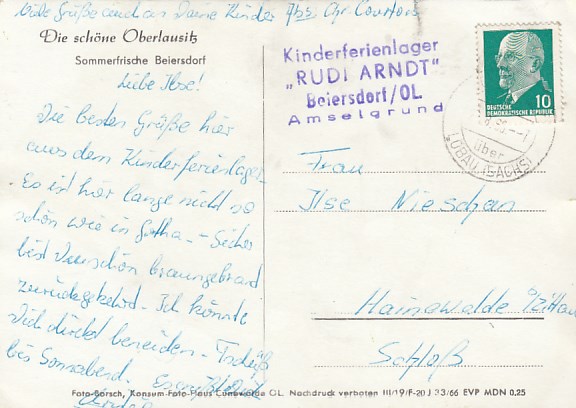 Viele Grüße auch an Deine Kinder Abs. Chr.
Die schöne Oberlausitz
Sommerfrische Beiersdorf
Liebe Ilse!
Die besten Grüße hier
aus dem Kinderferienlager.
Es ist hier lange nicht so
schön wie in Gotha. – Sicher
bist Du schön braungebrand
zurückgekehrt. Ich könnte
Dich direkt beneiden.
bis Sonnabend. Es grüßt Dich
Kinderferienlager
„RUDI ARNDT"
Beiersdorf/OL
Amselgrund
DEUTSCHE
DEMOKRATISCHE REPUBLIK
10
über
LÖBAU (SACHS)
Frau
Ilse Nieschan
Hainewalde b/Zittau
Schloß
Foto-Borsch, Konsum Foto-Haus Cunewalde OL. Nachdruck verboten III/19/F-20 J 33/66 EVP MDN 0,25